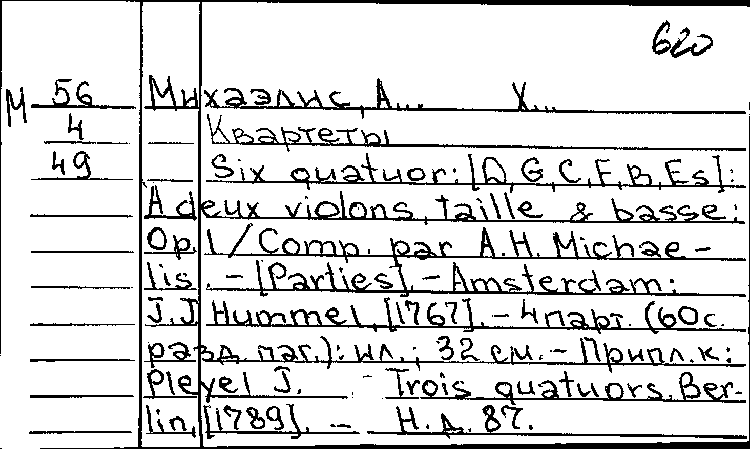 620
М 56 Михаэлис, А... Х...
4 Квартеты
49 Six quatuor: [D, G, C, F, B, Es]:
A deux violons, taille & basse:
Op. 1 / Comp. par A. H. Michae-
lis. - [Parties]. - Amsterdam:
J. J. Hummel, [1767]. - 4 парт. (60 с.
разд. паг.): ил.; 32 см. - Припл. к:
Pleyel J. - Trois quatuors. Ber-
lin, [1789]. - Н. д. 87.